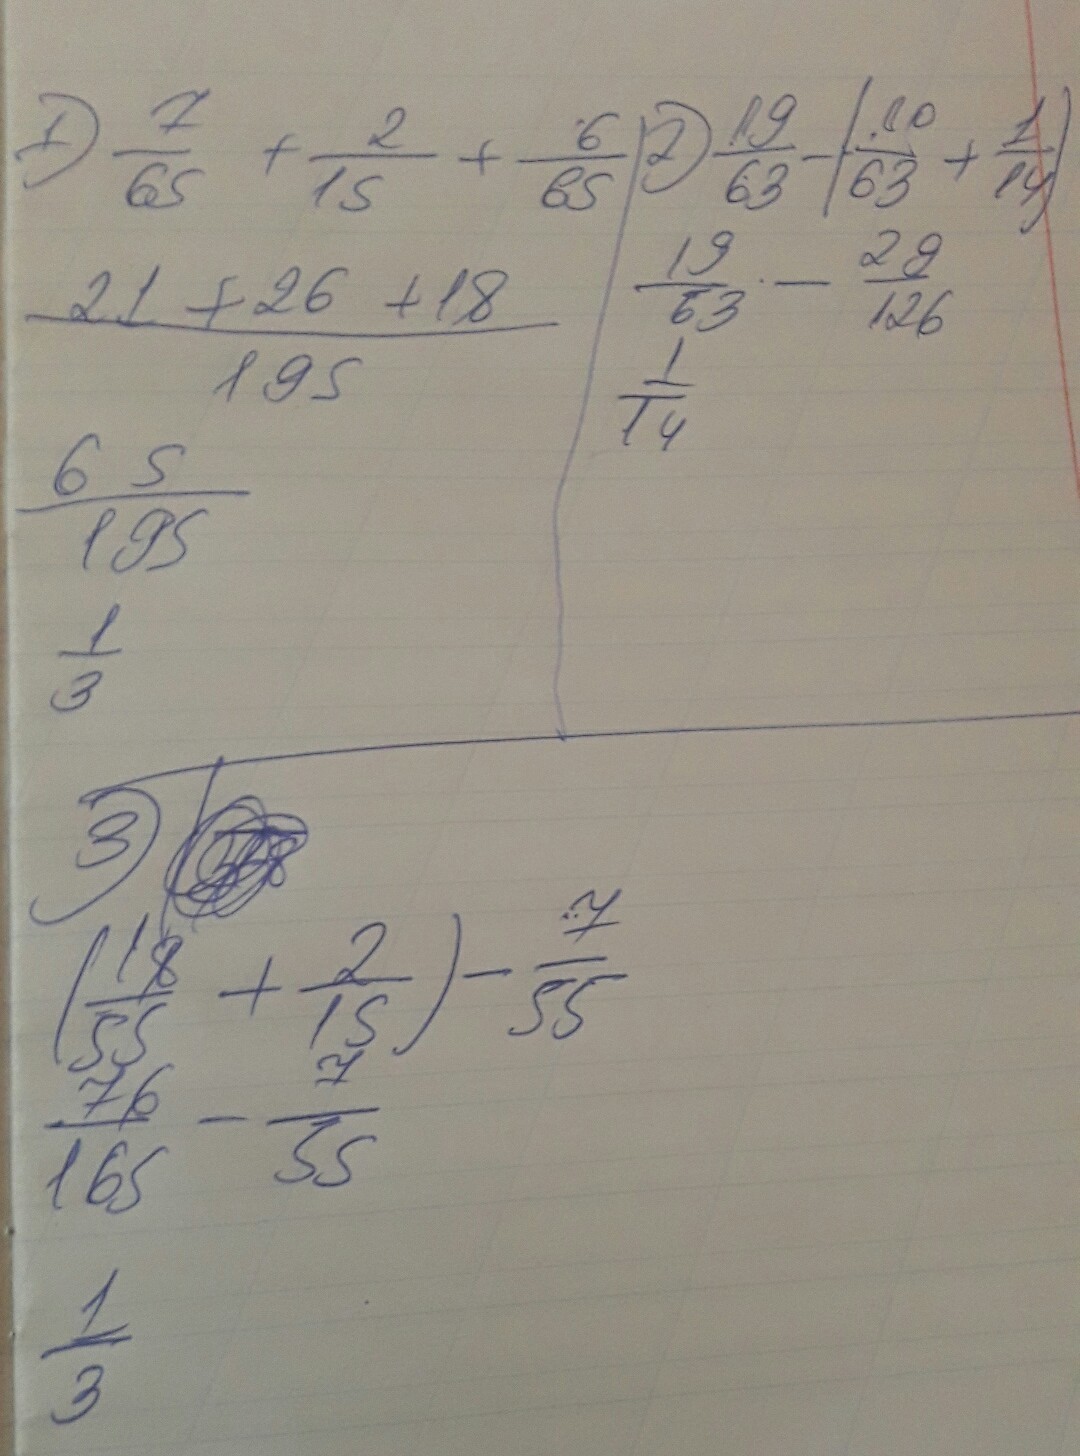 1) 7/65 + 2/15 + 6/65
21 + 26 + 18 / 195
65/195
1/3
2) 19/63 - (10/63 + 1/14)
19/63 - 29/126
1/14
3)
(18/55 + 2/15) - 7/55
76/165 - 7/55
1/3